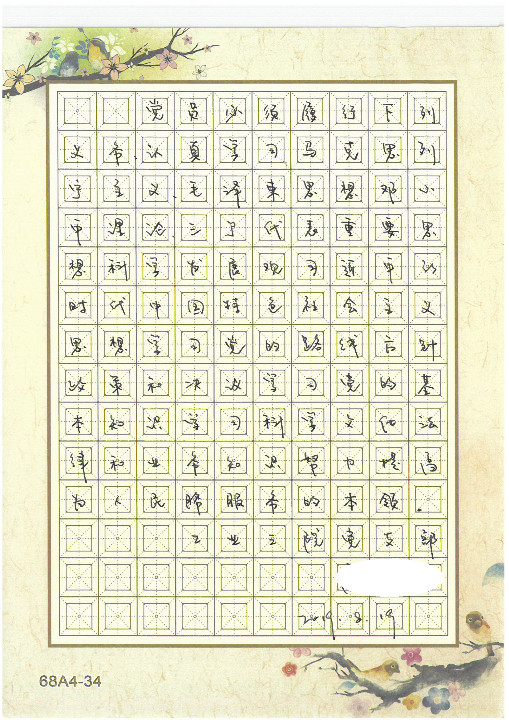 党员必须履行下列
义务,认真学习马克思列
宁主义、毛泽东思想邓小
平理论、三个代表重要思
想科学发展观习近平新
时代中国特色社会主义
思想学习党的路线方针
政策和决议学习党的基
本知识学习科学文化法
律和业务知识努力提高
为人民服务的本领.
工业三院党支部
2019.8.19
68A4-34